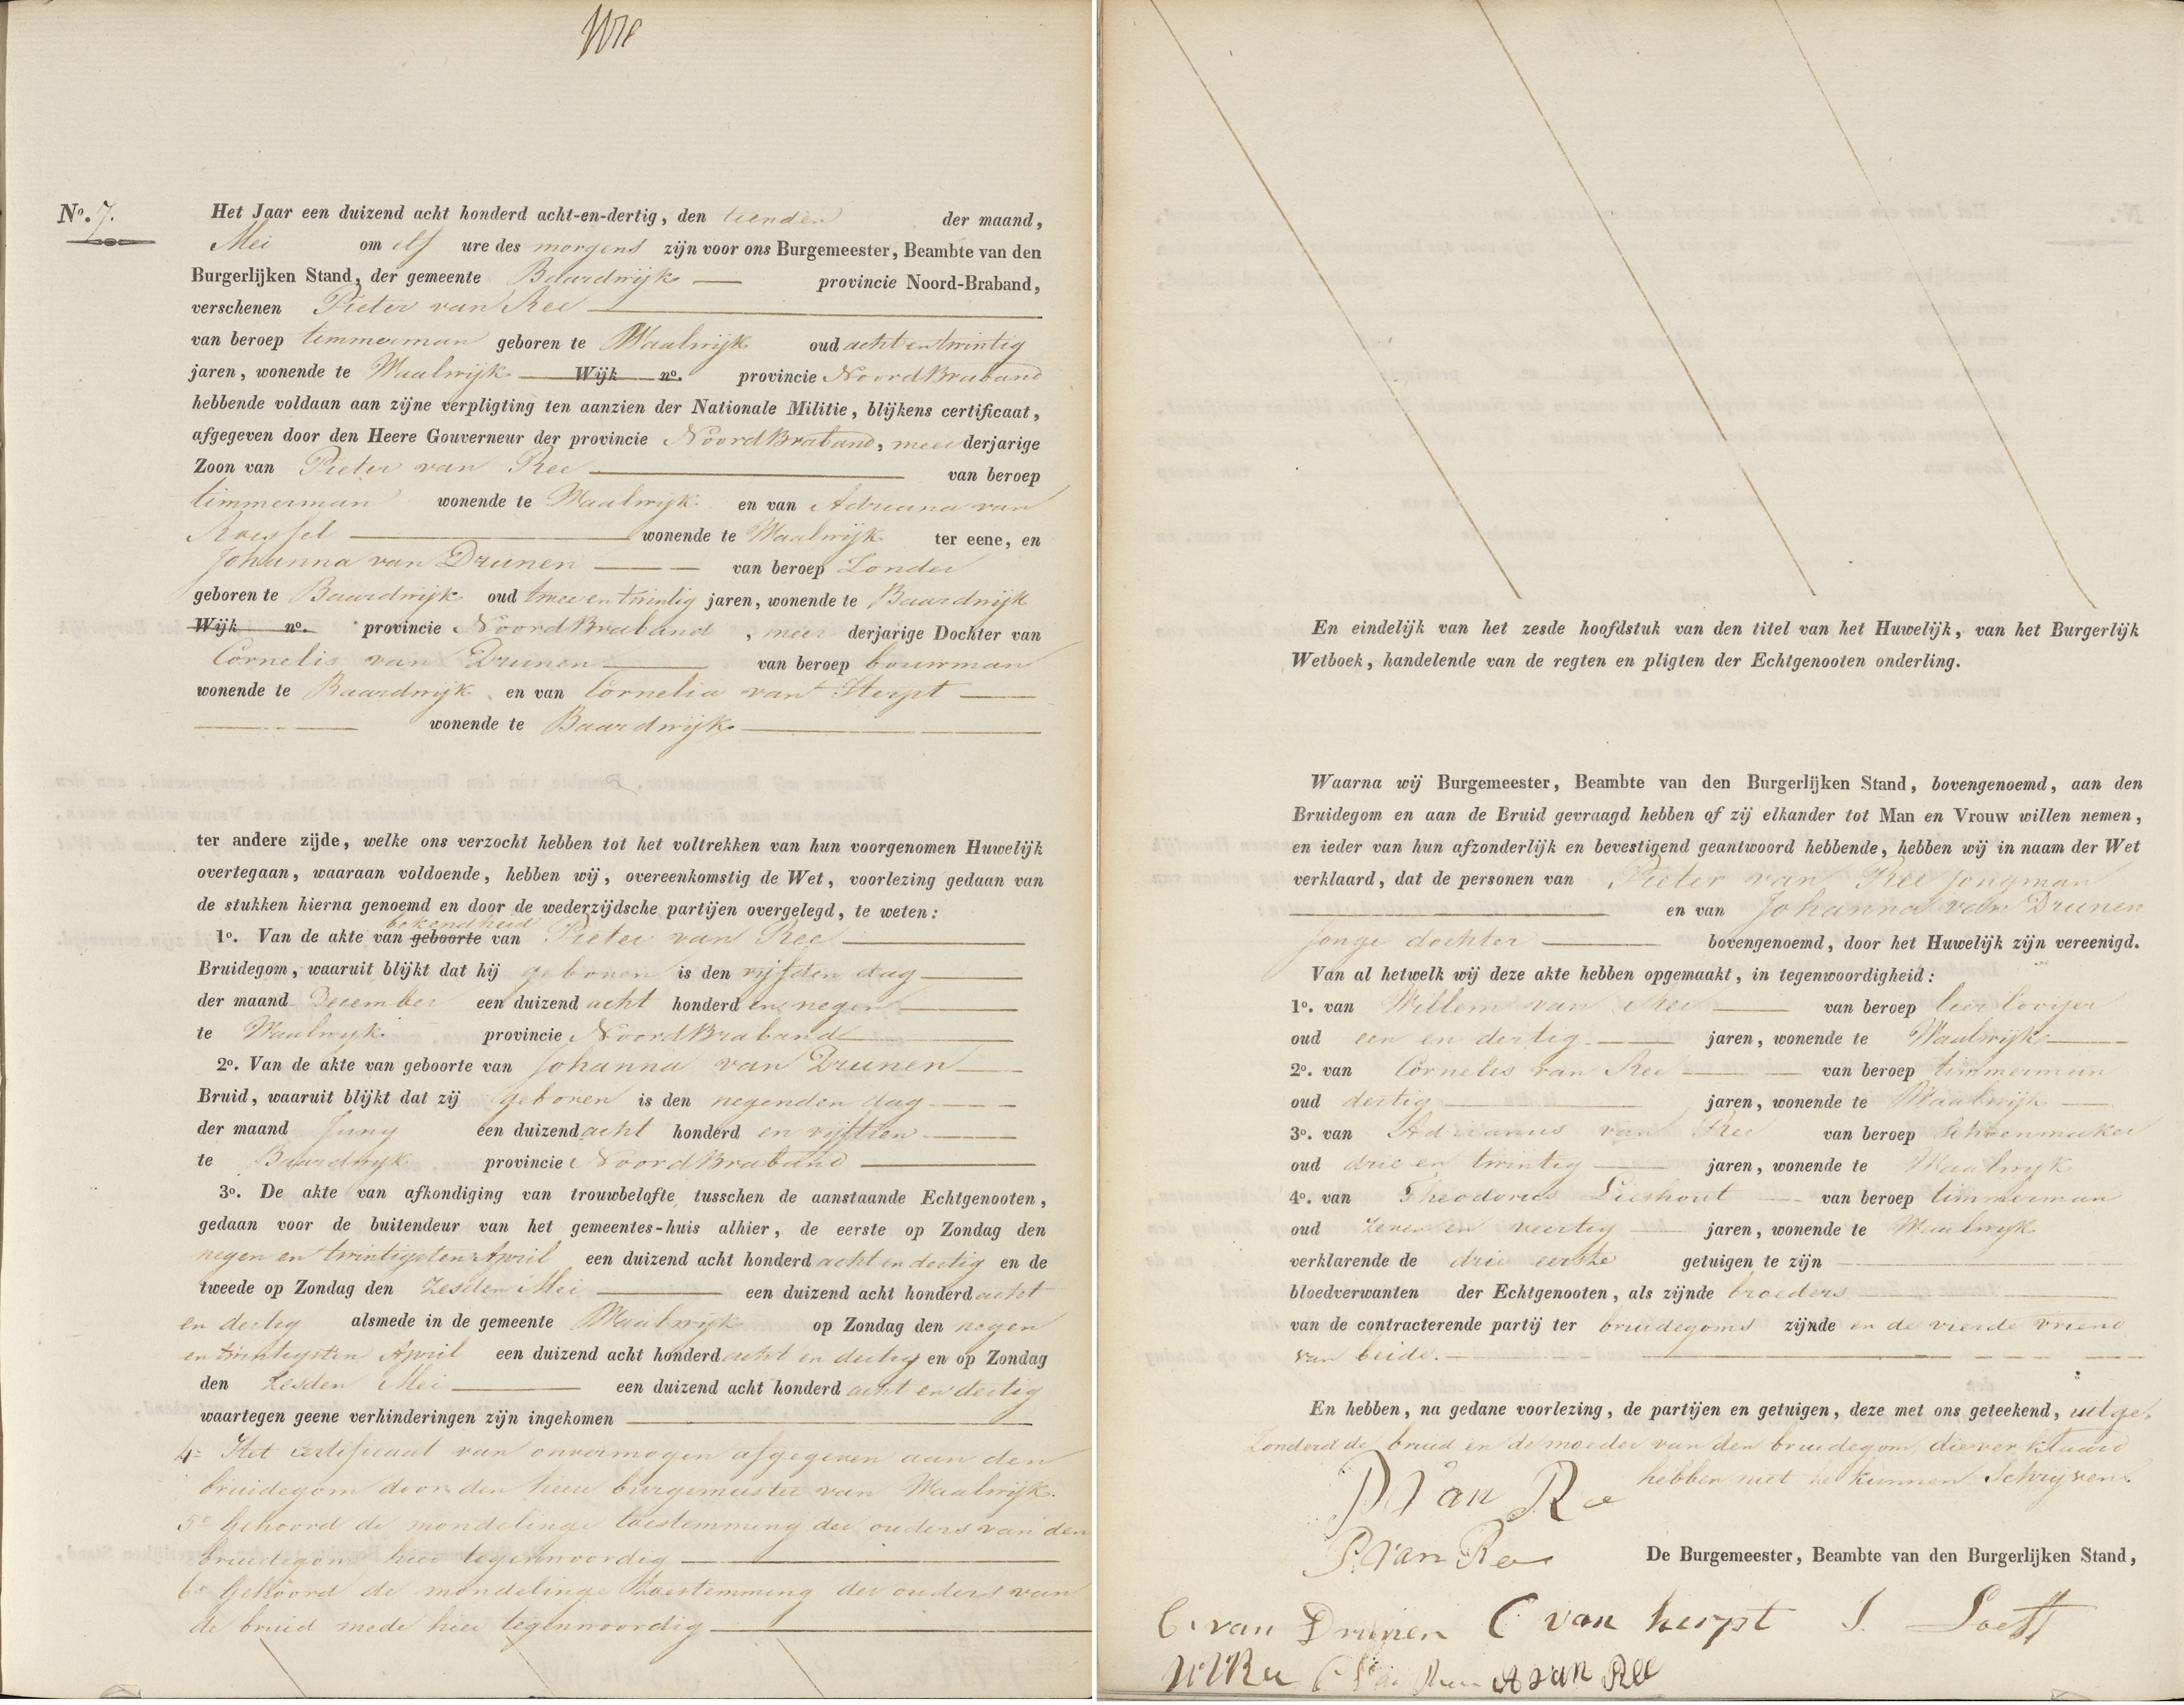 No. 7.
Het Jaar een duizend acht honderd acht-en-dertig, den tienden der maand,
Mei om elf ure des morgens zijn voor ons Burgemeester, Beambte van den
Burgerlijken Stand, der gemeente Baardwijk provincie Noord-Braband,
verschenen Pieter van Ree
van beroep timmerman geboren te Waalwijk oud acht en twintig
jaren, wonende te Waalwijk Wijk no. provincie Noord Braband
hebbende voldaan aan zijne verpligting ten aanzien der Nationale Militie, blijkens certificaat,
afgegeven door den Heere Gouverneur der provincie Noord Braband, meer derjarige
Zoon van Pieter van Ree van beroep
timmerman wonende te Waalwijk en van Adriana van
Roessel wonende te Waalwijk ter eene, en
Johanna van Drunen van beroep Zonder
geboren te Baardwijk oud twee en twintig jaren, wonende te Baardwijk
Wijk no. provincie Noord Braband, meer derjarige Dochter van
Cornelis van Drunen van beroep bouwman
wonende te Baardwijk en van Cornelia van Herpt
wonende te Baardwijk
ter andere zijde, welke ons verzocht hebben tot het voltrekken van hun voorgenomen Huwelijk
overtegaan, waaraan voldoende, hebben wij, overeenkomstig de Wet, voorlezing gedaan van
de stukken hierna genoemd en door de wederzijdsche partijen overgelegd, te weten:
bekendheid
1o. Van de akte van geboorte van Pieter van Ree
Bruidegom, waaruit blijkt dat hij geboren is den vijfden dag
der maand December een duizend acht honderd en negen
te Waalwijk provincie Noord Braband
2o. Van de akte van geboorte van Johanna van Drunen
Bruid, waaruit blijkt dat zij geboren is den negenden dag
der maand Juny een duizend acht honderd en vijftien
te Baardwijk provincie Noord Braband
3o. De akte van afkondiging van trouwbelofte tusschen de aanstaande Echtgenooten,
gedaan voor de buitendeur van het gemeentes-huis alhier, de eerste op Zondag den
negen en twintigsten April een duizend acht honderd acht en dertig en de
tweede op Zondag den zesden Mei een duizend acht honderd acht
en dertig alsmede in de gemeente Waalwijk op Zondag den negen
en twintigsten April een duizend acht honderd acht en dertig en op Zondag
den zesden Mei een duizend acht honderd acht en dertig
waartegen geene verhinderingen zijn ingekomen
4e Het certificaat van onvermogen afgegeven aan den
bruidegom door den heere burgemeester van Waalwijk.
5e Gehoord de mondelinge toestemming der ouders van den
bruidegom hier tegenwoordig
6e Gehoord de mondelinge toestemming der ouders van
de bruid mede hier tegenwoordig
En eindelijk van het zesde hoofdstuk van den titel van het Huwelijk, van het Burgerlijk
Wetboek, handelende van de regten en pligten der Echtgenooten onderling.
Waarna wij Burgemeester, Beambte van den Burgerlijken Stand, bovengenoemd, aan den
Bruidegom en aan de Bruid gevraagd hebben of zij elkander tot Man en Vrouw willen nemen,
en ieder van hun afzonderlijk en bevestigend geantwoord hebbende, hebben wij in naam der Wet
verklaard, dat de personen van Pieter van Ree jongman
en van Johanna van Drunen
jonge dochter bovengenoemd, door het Huwelijk zijn vereenigd.
Van al hetwelk wij deze akte hebben opgemaakt, in tegenwoordigheid:
1o. van Willem van Ree van beroep leerlooijer
oud een en dertig jaren, wonende te Waalwijk
2o. van Cornelis van Ree van beroep timmerman
oud dertig jaren, wonende te Waalwijk
3o. van Adrianus van Ree van beroep Schoenmaker
oud drie en twintig jaren, wonende te Waalwijk
4o. van Theodorus Lieshout van beroep timmerman
oud zeven en veertig jaren, wonende te Waalwijk
verklarende de drie eerste getuigen te zijn
bloedverwanten der Echtgenooten, als zijnde broeders
van de contracterende partij ter bruidegoms zijnde en de vierde vriend
van beide.
En hebben, na gedane voorlezing, de partijen en getuigen, deze met ons geteekend, uitge-
zonderd de bruid en de moeder van den bruidegom, die verklaard
hebben niet te kunnen Schrijven
P Van Ree
P. van Ree
De Burgemeester, Beambte van den Burgerlijken Stand,
C. van Drunen C van herpt J. Loeff
A van Ree